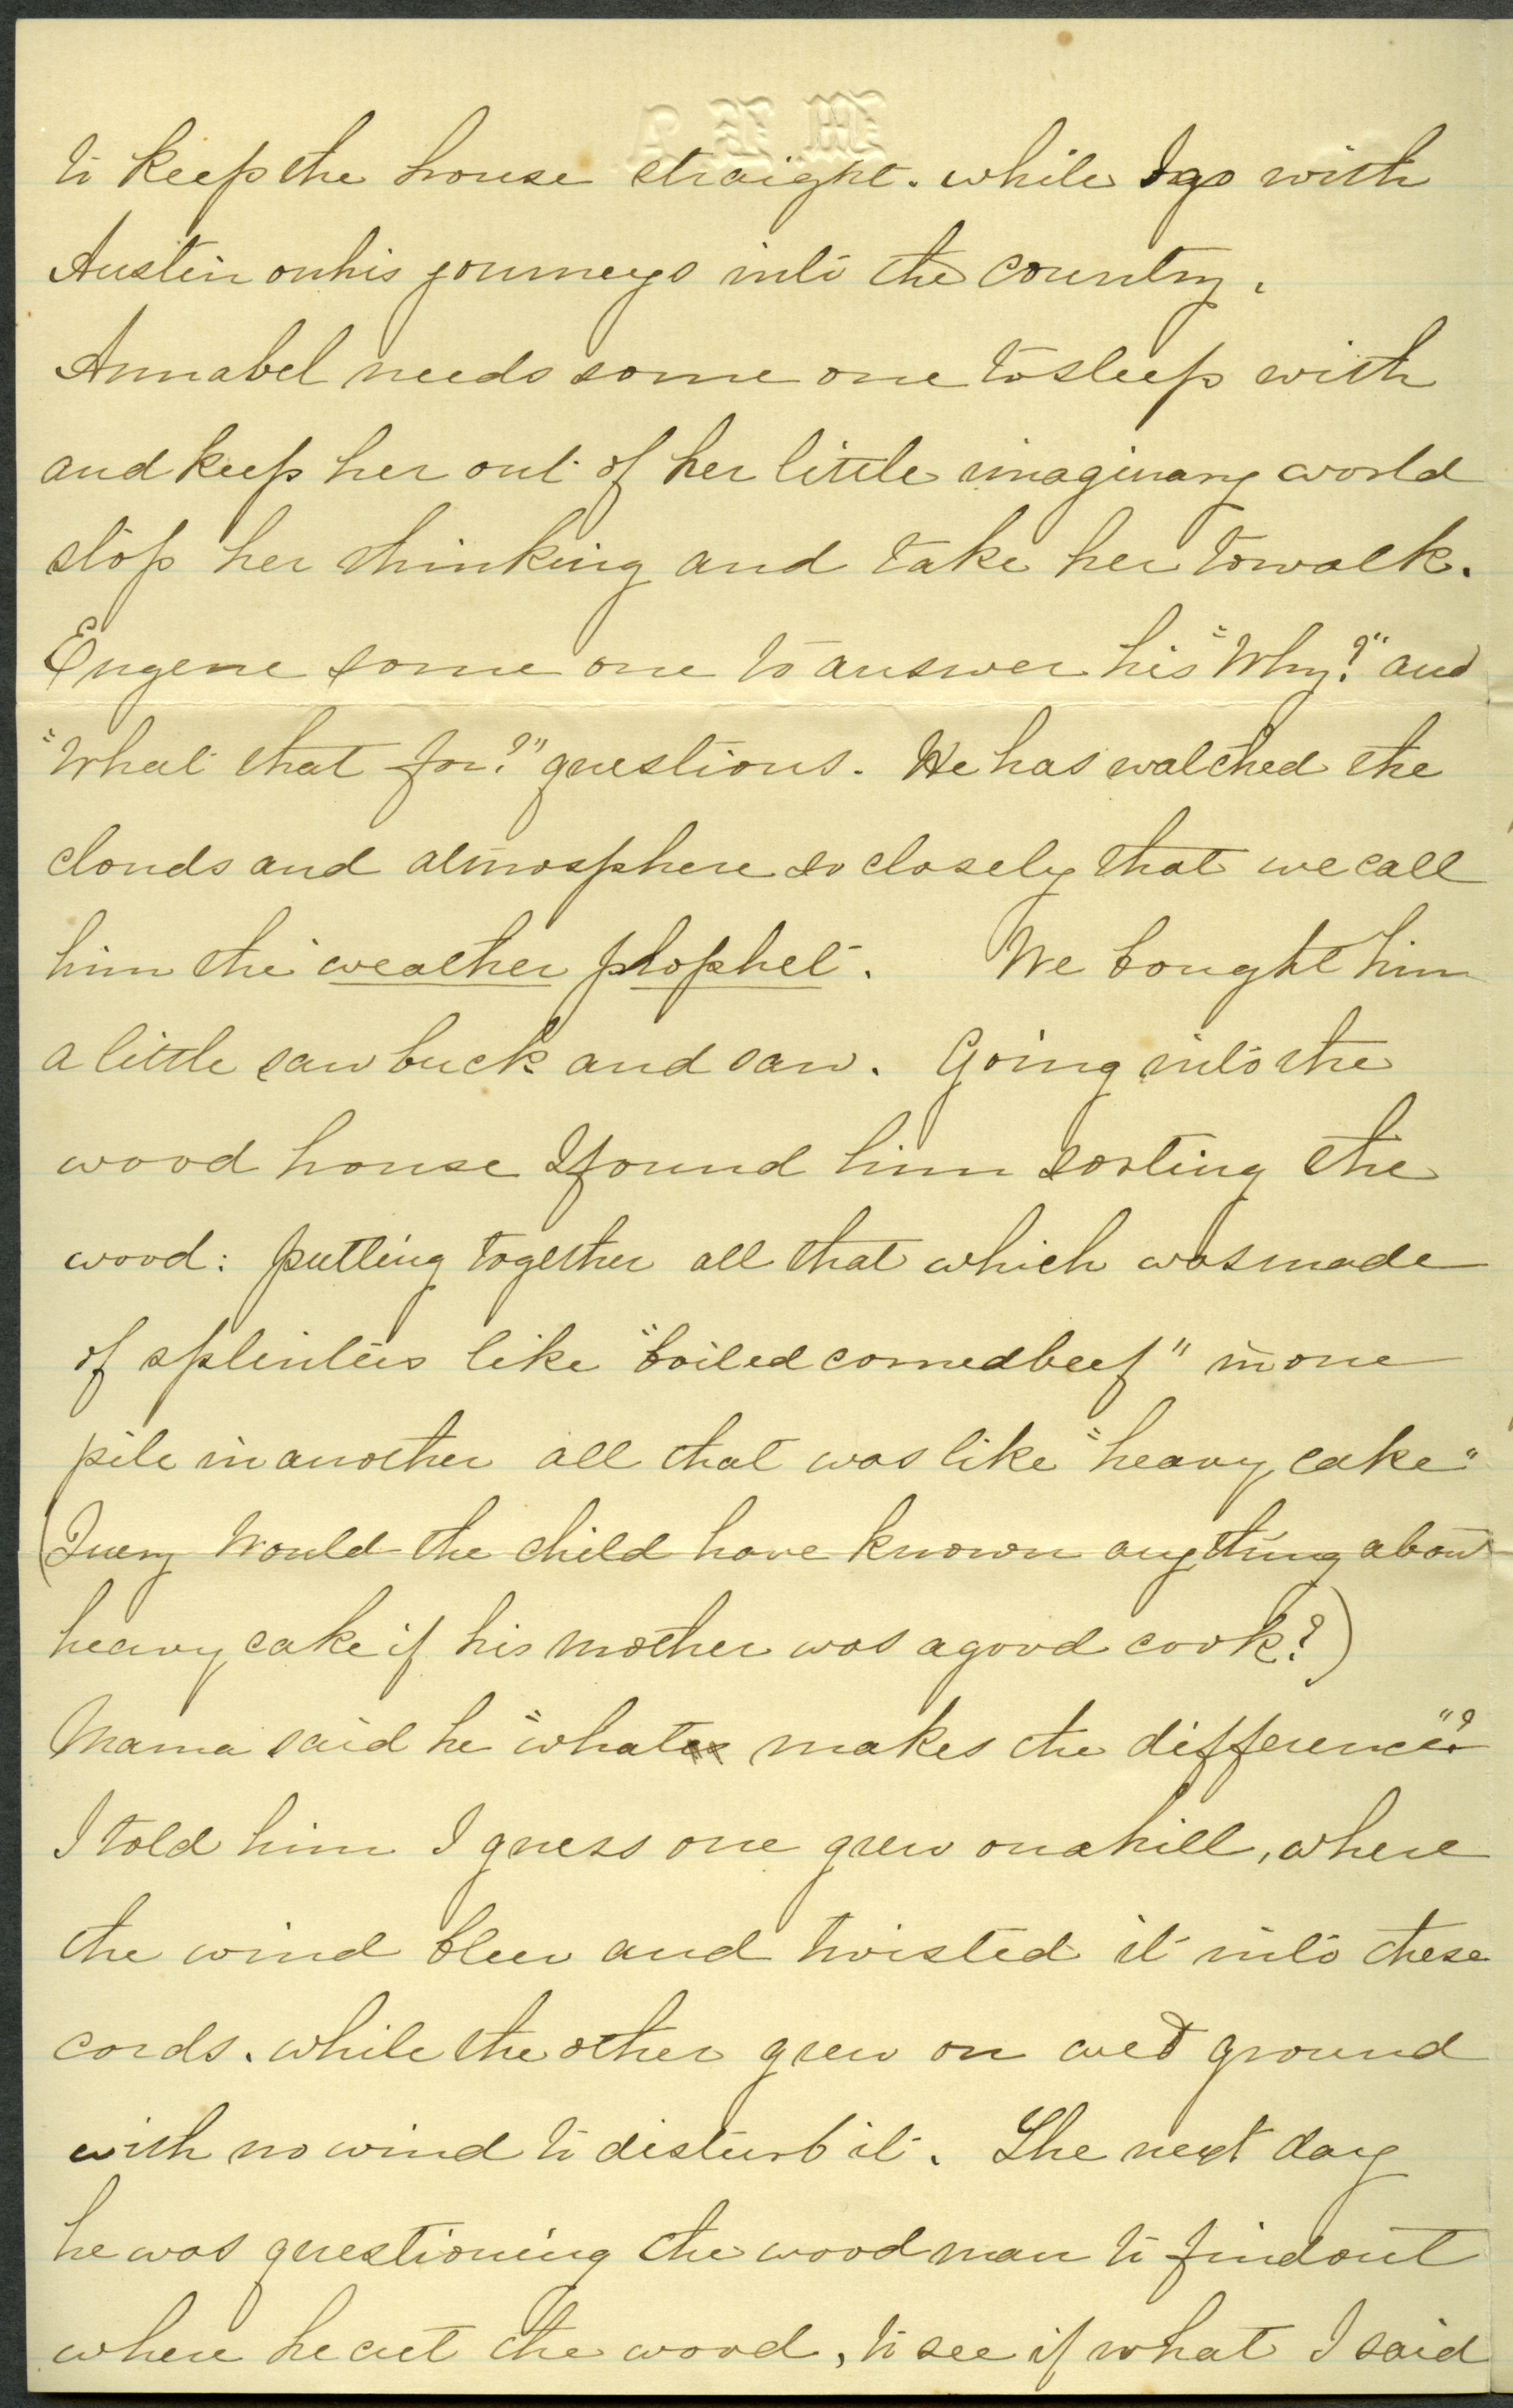 to keep the house straight. while I go with
Austin on his journeys into the country.
Annabel needs some one to sleep with
and keep her out of her little imaginary world
stop her thinking and take her to walk.
Eugene some one to answer his "Why?" and
"What that for?" questions. He has watched the
clouds and atmosphere so closely that we call
him the weather prophet. We bought him
a little saw buck and saw. Going into the
wood house I found him sorting the
wood: putting together all that which was made
of splinters like "boiled corned beef" in one
pile in another all that was like "heavy cake"
(Query Would the child have known anything about
heavy cake if his mother was a good cook?)
Mama said he "what makes the difference"?
I told him I guess one grew on a hill, where
the wind blew and twisted it into these
cords. while the other grew on wet ground
with no wind to disturb it. The next day
he was questioning the wood man to find out
where he cut the wood, to see if what I said